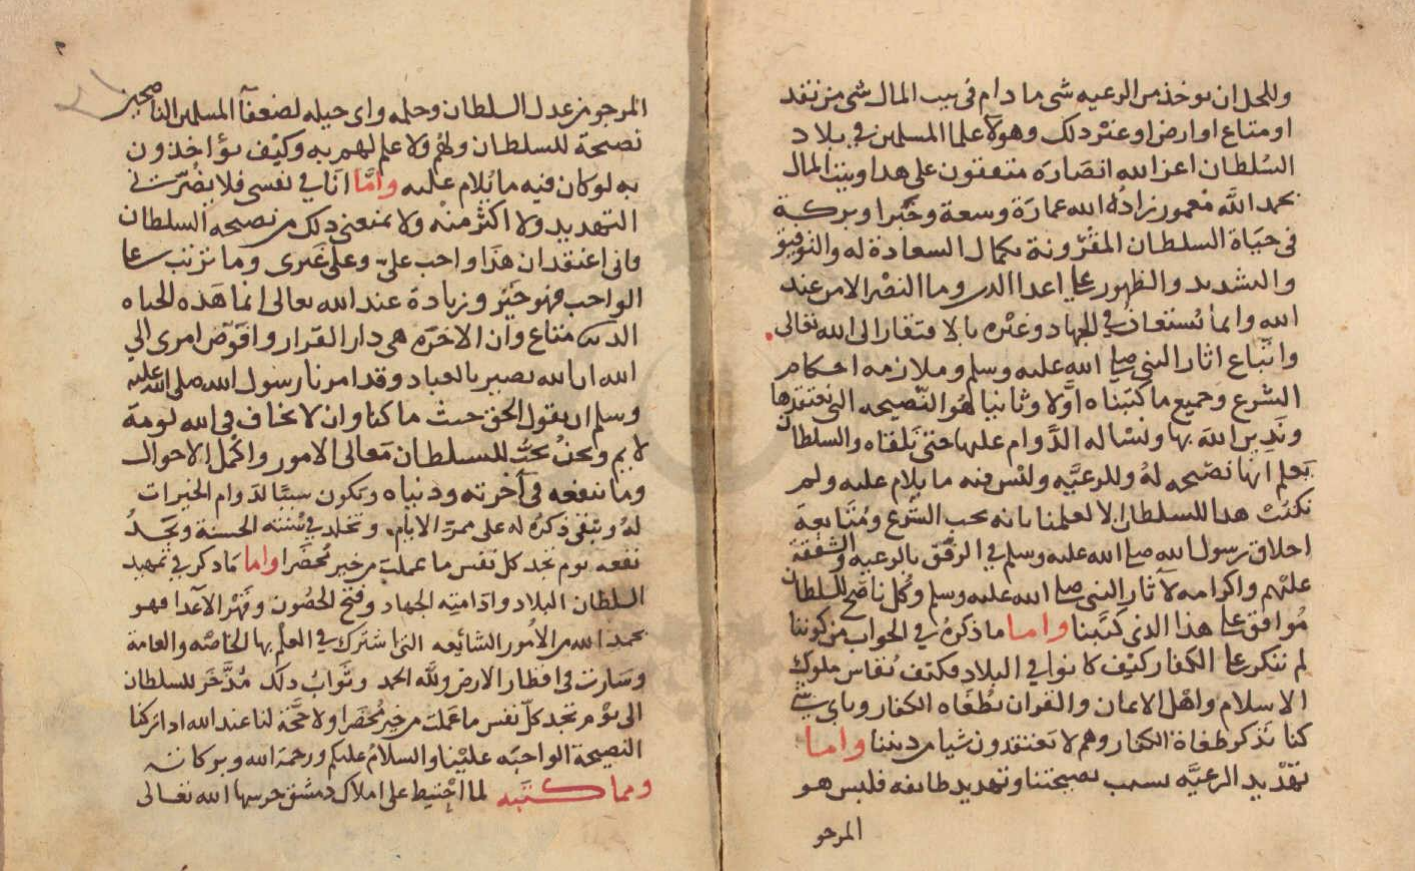 ولا يحل ان يوخذ من الرعيه شى ما دام فى بيت المال شى من نقد
او متاع او ارض او غير ذلك وهولآ علما المسلمين في بلاد
السلطان اعز الله انصاره متفقون على هذا وبيت المال
بحمد الله معمور زاده الله عمارة وسعة وخيرا وبركة
فى حياة السلطان المقرونة بكمال السعادة له والتوفيق
والتسديد والظهور على اعدا الدين وما النصر الا من عند
الله وانما يستعان في الجهاد وغيره بالافتقار الى الله تعالى
واتباع اثار النبي صلى الله عليه وسلم وملازمة احكام
الشرع وجميع ما كتبناه اولا وثانيا هو النصيحه التى نعتقدها
وندين الله بها ونساله الدوام عليها حتى نلقاه والسلطان
يعلم انها نصيحه له وللرعيه وليس فيه ما يلام عليه ولم
نكتب هذا للسلطان الا لعلمنا بانه يحب الشرع ومتابعة
اخلاق رسول الله صلى الله عليه وسلم في الرفق بالرعيه والشفقة
عليهم واكرامه لآثار النبي صلى الله عليه وسلم وكل ناصح للسلطان
موافق على هذا الذي كتبنا واما ما ذكره في الجواب من كوننا
لم ننكر على الكفار كيف كانوا في البلاد فكيف نقاس ملوك
الاسلام واهل الايمان والقران بطغاه الكفار وباى شى
كنا نذكر طغاة الكفار وهم لا يعتقدون شيا من ديننا واما
تهديد الرعيه بسبب نصيحتنا وتهديد طايفه فليس هو
المرجو
المرجو من عدل السلطان وحلمه واى حيله لضعفآ المسلمين الناصحين
نصيحة للسلطان ولهم ولا علم لهم به وكيف يؤاخذون
به لو كان فيه ما يلام عليه واما انا في نفسى فلا يضرني
التهديد ولا اكثر منه ولا يمنعنى ذلك من نصيحه السلطان
فانى اعتقد ان هذا واجب على وعلى غيرى وما ترتب على
الواجب فهو خير وزيادة عند الله تعالى انما هذه الحياه
الدنيا متاع وان الاخره هى دار القرار وافوض امرى الي
الله ان الله بصير بالعباد وقد امرنا رسول الله صلى الله عليه
وسلم ان نقول الحق حيث ما كنا وان لا نخاف فى الله لومة
لايم ونحن نحب للسلطان معالى الامور واكمل الاحوال
وما ينفعه فى آخرته ودنياه ويكون سببا لدوام الخيرات
له ويبقى ذكره له على ممر الايام وتخلد في سنته الحسنة ويجد
نفعه يوم تجد كل نفس ما عملت من خير محضرا واما ما ذكر في تمهيد
السلطان البلاد وادامته الجهاد وفتح الحصون وقهر الاعدا فهو
بحمد الله من الامور الشائعه التى اشترك في العلم بها الخاصه والعامة
وسارت فى اقطار الارض ولله الحمد وثواب ذلك مدخر للسلطان
الى يوم تجد كل نفس ما عملت من خير محضرا ولا حجة لنا عند الله اذا تركنا
النصيحة الواجبه علينا والسلام عليكم ورحمة الله وبركاته
ومما كتبه لما احتيط على املاك دمشق حرسها الله تعالى